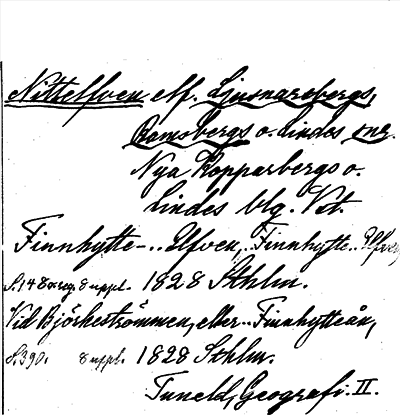 Nittelfven elf. Ljusnarsbergs,
Ramsbergs o. Lindes snr.
Nya Kopparbergs o.
Lindes blg. Vst.
Finnhytte-.. Elfven, .. Finnhytte.. Elfven
S. 148 8 uppl. 1828 Sthlm.
Vid Björkeströmmen, eller .. Finnhytteån,
S. 390. 8 uppl. 1828 Sthlm.
Tuneld, Geografi. II.